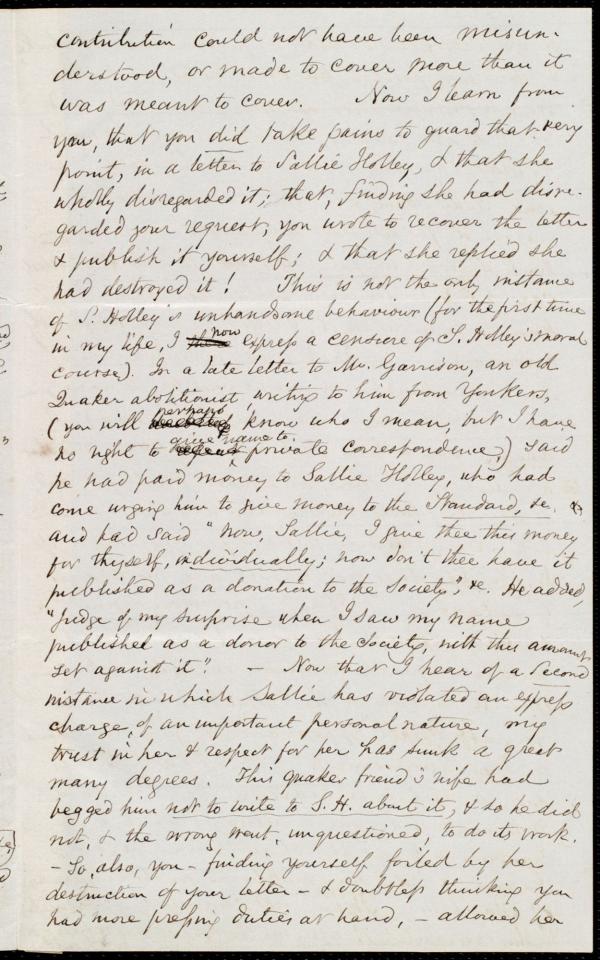 contribution could not have been misun-
derstood, or made to cover more than it
was meant to cover. Now I learn from
you, that you did take pains to guard that very
point, in a letter to Sallie Holley, & that she
wholly disregarded it; that, finding she had disre-
garded your request, you wrote to recover the letter
& publish it yourself; & that she replied she
had destroyed it! This is not the only instance
of S. Holley's unhandsome behaviour (for the first time
in my life, I now express a censure of S. Holley's moral
course). In a late letter to Mr. Garrison, an old
Quaker abolitionist, writing to him from Yonkers,
(you will perhaps know who I mean, but I have
no right to give name to private correspondence,) said
he had paid money to Sallie Holley, who had
come urging him to give money to the Standard, &c. &
and had said "Now, Sallie, I give thee this money
for thyself, individually; now don't thee have it
published as a donation to the Society", &c. He added,
"Judge of my surprise when I saw my name
published as a donor to the Society, with this amount
set against it". — Now that I hear of a second
instance in which Sallie has violated an express
charge, of an important personal nature, my
trust in her & respect for her has sunk a great
many degrees. This quaker friend's wife had
begged him not to write to S.H. about it, & so he did
not, & the wrong went, unquestioned, to do its work.
- So, also, you - finding yourself foiled by her
destruction of your letter - & doubtless thinking you
had more pressing duties at hand, - allowed her